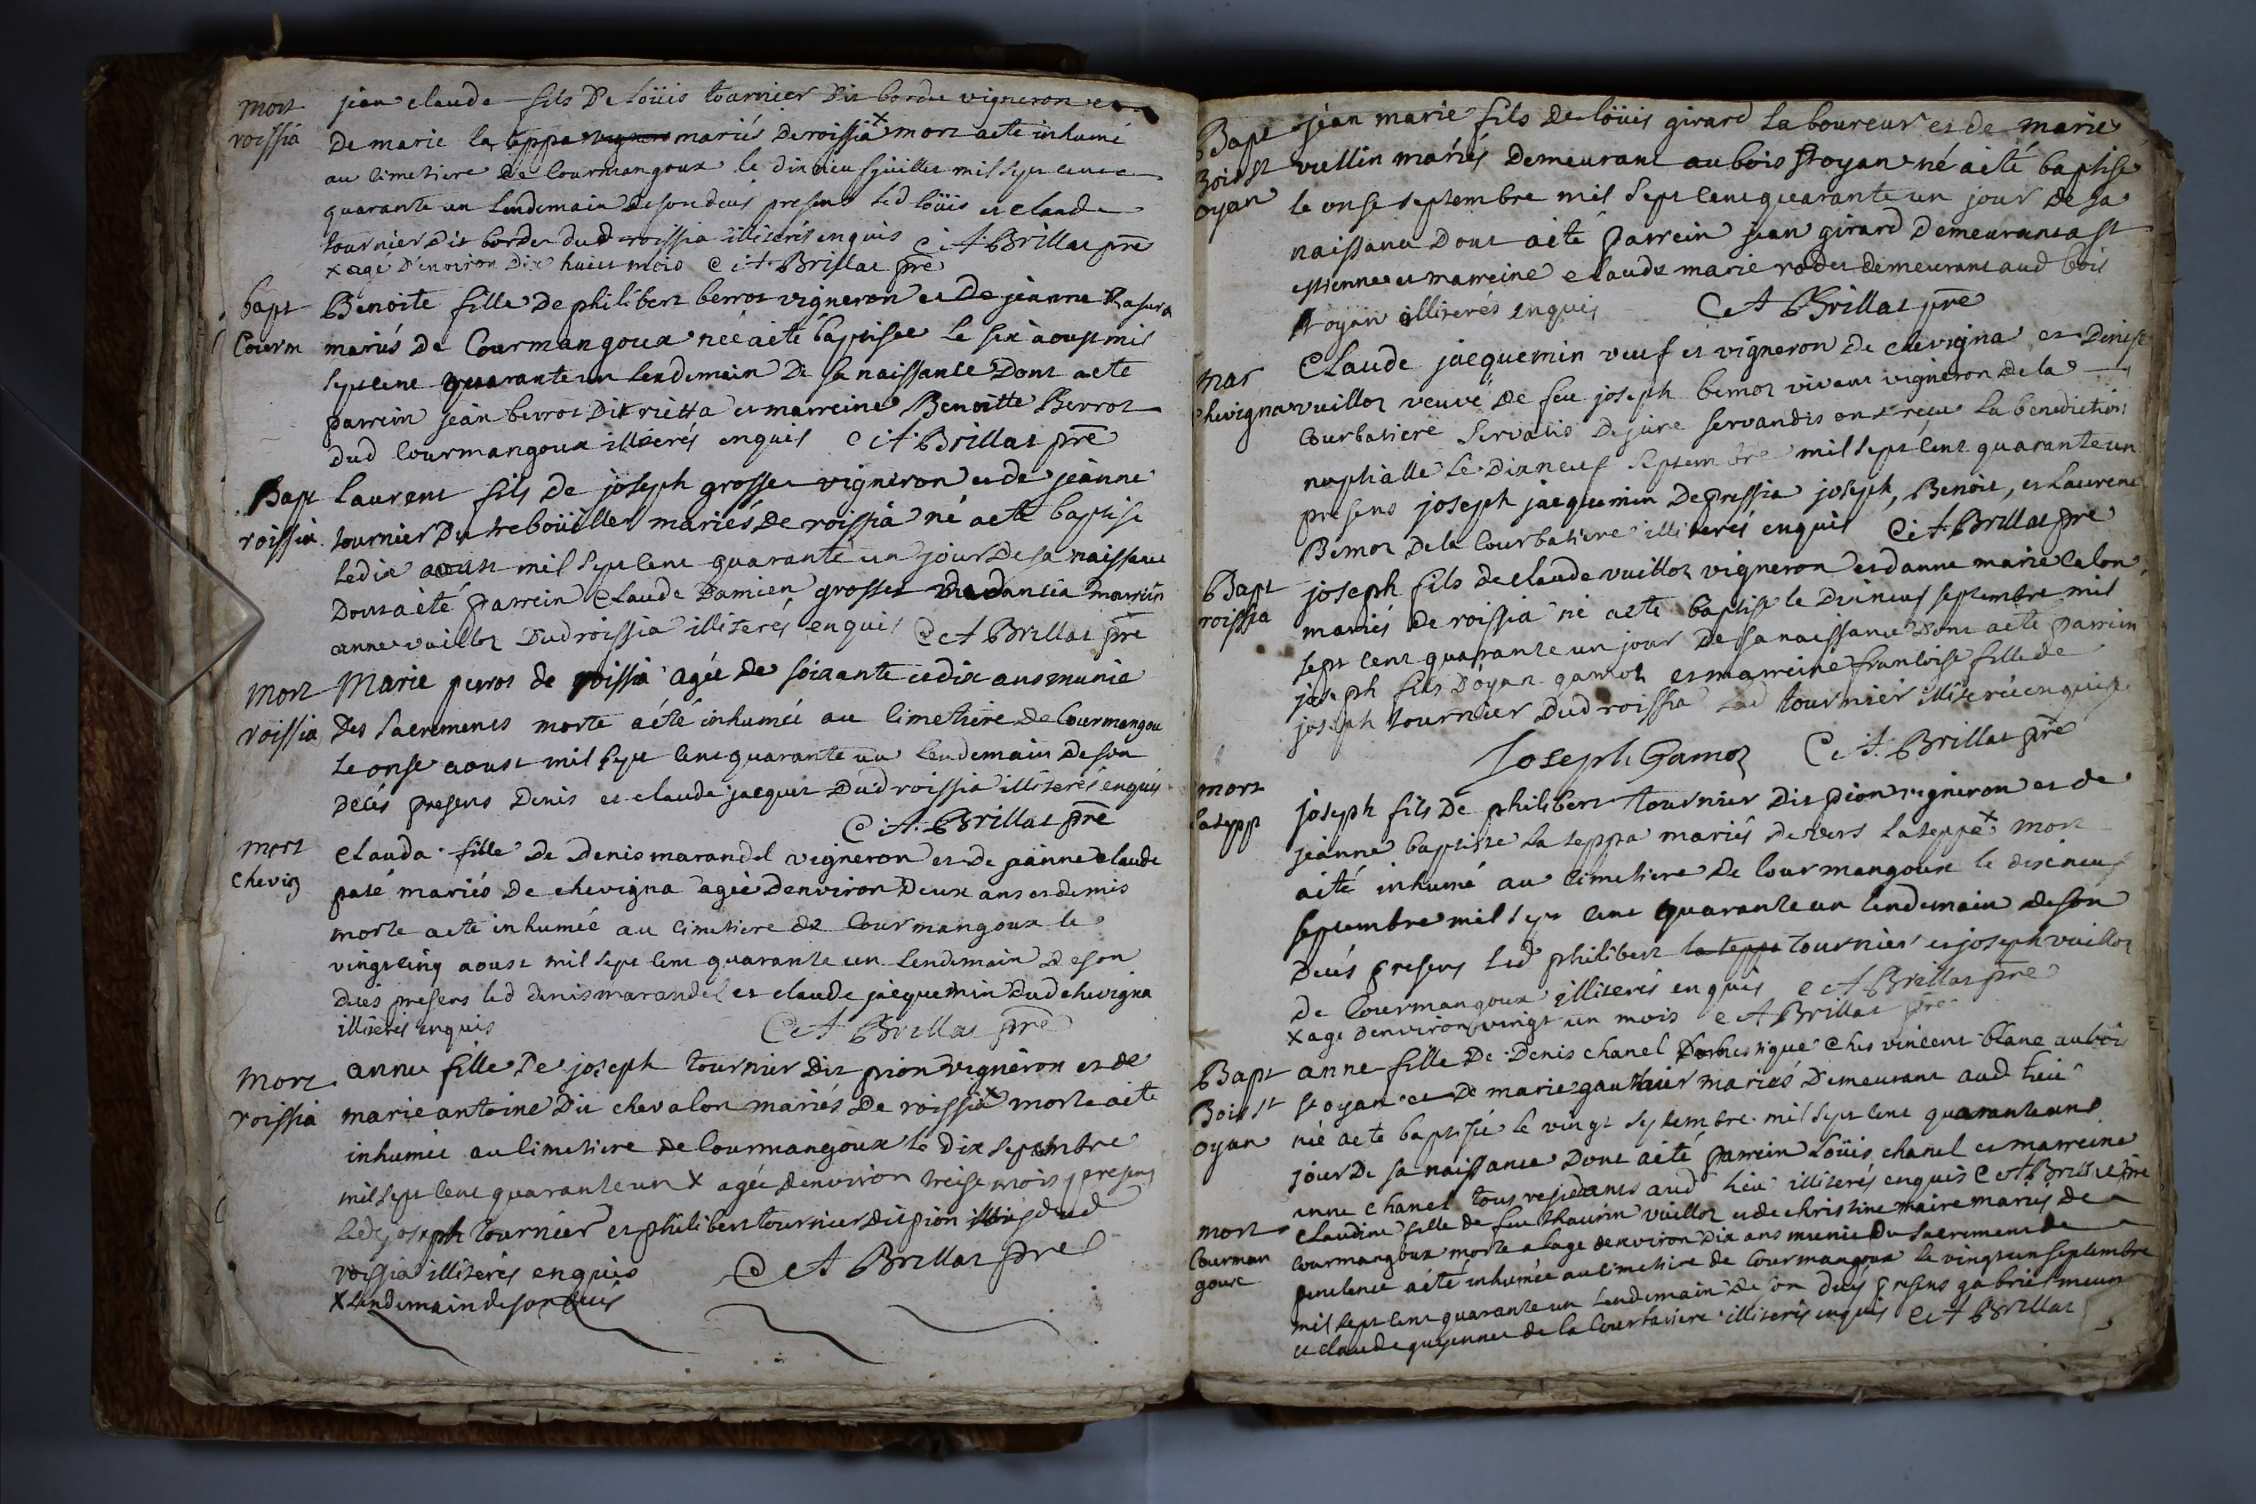 mort jean claude fils De Loüis tournier Dit borde vigneron et
roissia De marie la teppa mariés De roissia x mort aeté inhumé
au cimetiere de Courmangoux le dix neuf juillet mil sept cent
quarante un Lendemain de son deces presens led Loüis et claude
tournier Dit border dud roissia illiterés enquis C A Brillat pre
x agé D'environ Dix huict mois C A Brillat pre
bapt Benoite fille De philibert berrot vigneron et De jeanne
Courm mariés De Courmangoux née aeté baptisee Le six aoust mil
sept cent quarante un Lendemain De sa naissance Dont aeté
parrein jean berrot Dit rietta et marreine Benoitte Berrot
dud Courmangoux illiterés enquis C A Brillat pre
Bapt Laurent fils De joseph grosset vigneron et de jeanne
roissia tournier Du treboüillet mariés de roissia né aeté baptisé
Le dix aoust mil sept cent quarante un jour De sa naissance
Dont aété parrein Claude Damien grosset De dancia marrein
anne vuillot Dud roissia illiterés enquis C A Brillat pre
mort Marie perrot de roissia agée de soixante et dix ans munie
roissia Des sacremens morte aété inhumée au cimetiere De Courmangou
Le onse aoust mil sept cent quarante un Lendemain De son
decés presens Denis et claude jacquet Dud roissia illiterés enquis
C A Brillat pre
mort Clauda fille De Denis marandel vigneron et De jeanne Claude
chevig paté mariés De chevigna agée D'environ Deux ans et demis
morte aeté inhumée au cimetiere de Courmangoux le
vingt cinq aoust mil sept cent quarante un Lendemain De son
deces presens led denis marandel et claude jacquemin Dud chevigna
illiterés enquis C A Brillat pre
mort anne fille De joseph tournier Dit pion vigneron et de
roissia marie antoine Dit chevalon mariés De roissia x morte aeté
inhumée au cimetiere de Courmangoux le Dix septembre
mil sept cent quarante un x agée denviron treise mois presens
led joseph tournier et philibert tournier Dit pion dud
roissia illiterés enquis C A Brillat pre
x Lendemain de son deces
Bapt jean marie fils De Loüis girard Laboureur et de marie
Bois st vuillin mariés Demeurant au bois st oyan né aété baptisé
oyan le onse septembre mil sept cent quarante un jour De sa
naissance Dont aété parrein jean girard Demeurant a st
estienne et marreine claude marie rodet demeurant aud bois
st oyan illiterés enquis C A Brillat pre
mar Claude jacquemin veuf et vigneron De chevigna et Denise
chevigna vuillot veuve De feu joseph bemot vivant vigneron De la
Courbatiere servatis De jure servandis ont reçu La benediction
nuptialle Le Dix neuf septembre mil sept cent quarante un
presens joseph jacquemin De pressia joseph, Benoit, et Laurent
Bemot De la Courbatiere illiterés enquis C A Brillat pre
Bapt joseph fils De claude vuillot vigneron et d'anne marie Calon
roissia mariés De roissia né aeté baptisé le Dix neuf septembre mil
sept cent quarante un jour De sa naissance Dont aeté parrein
joseph fils D'oyan gamot et marreine francoise fille de
joseph tournier Dud roissia lad tournier illiterée enquise
Joseph Gamot C A Brillat pre
mort joseph fils De philibert tournier Dit pion vigneron et de
latepp jeanne baptiste La teppa mariés De vers La teppe x mort
aété inhumé au cimetiere De Courmangoux le dix neuf
septembre mil sept cent quarante un Lendemain De son
decés presens led philibert la teppe tournier et joseph vuillot
de Courmangoux illiterés enquis C A Brillat pre
x agé Denviron vingt un mois C A Brillat pre
Bapt anne fille De Denis chanel Domestique ches vincent blanc au bois
Bois st st oyan et De marie gauthier mariés Demeurant aud lieu
oyan née aeté baptisée le vingt septembre mil sept cent quarante un
jour De sa naissance Dont aété parrein Loüis chanel et marreine
anne chanel tous residants aud lieu illiterés enquis C A Brillat pre
mort Claudine fille de feu thaurin vuillot et de christine maire mariés De
Courman Courmangoux morte a l'age denviron Dix ans munie Du sacrement de
goux penitence aété inhumée au cimetiere de Courmangoux le vingt un septembre
mil sept cent quarante un Lendemain De son deces presens gabriel meun
et claude guyennet de la Courbatiere illiterés enquis C A Brillat